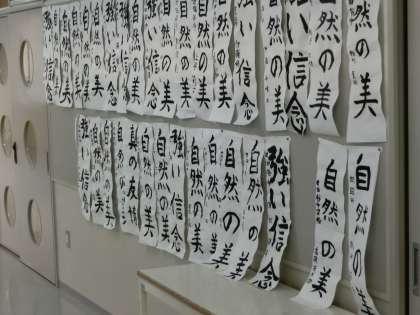 自然の美
自然の美
強い信念
自然の美
強い信念
自然の美
自然の美
自然の美
自然の美
自然の美
強い信念
強い信念
自然の美
自然の美
自然の美
強い信念
自然の美
自然の美
強い信念
自然の美
自然の美
自然の美
自然の美
強い信念
自然の美
自然の美
真の友情
自然の美
自然の美
強い信念